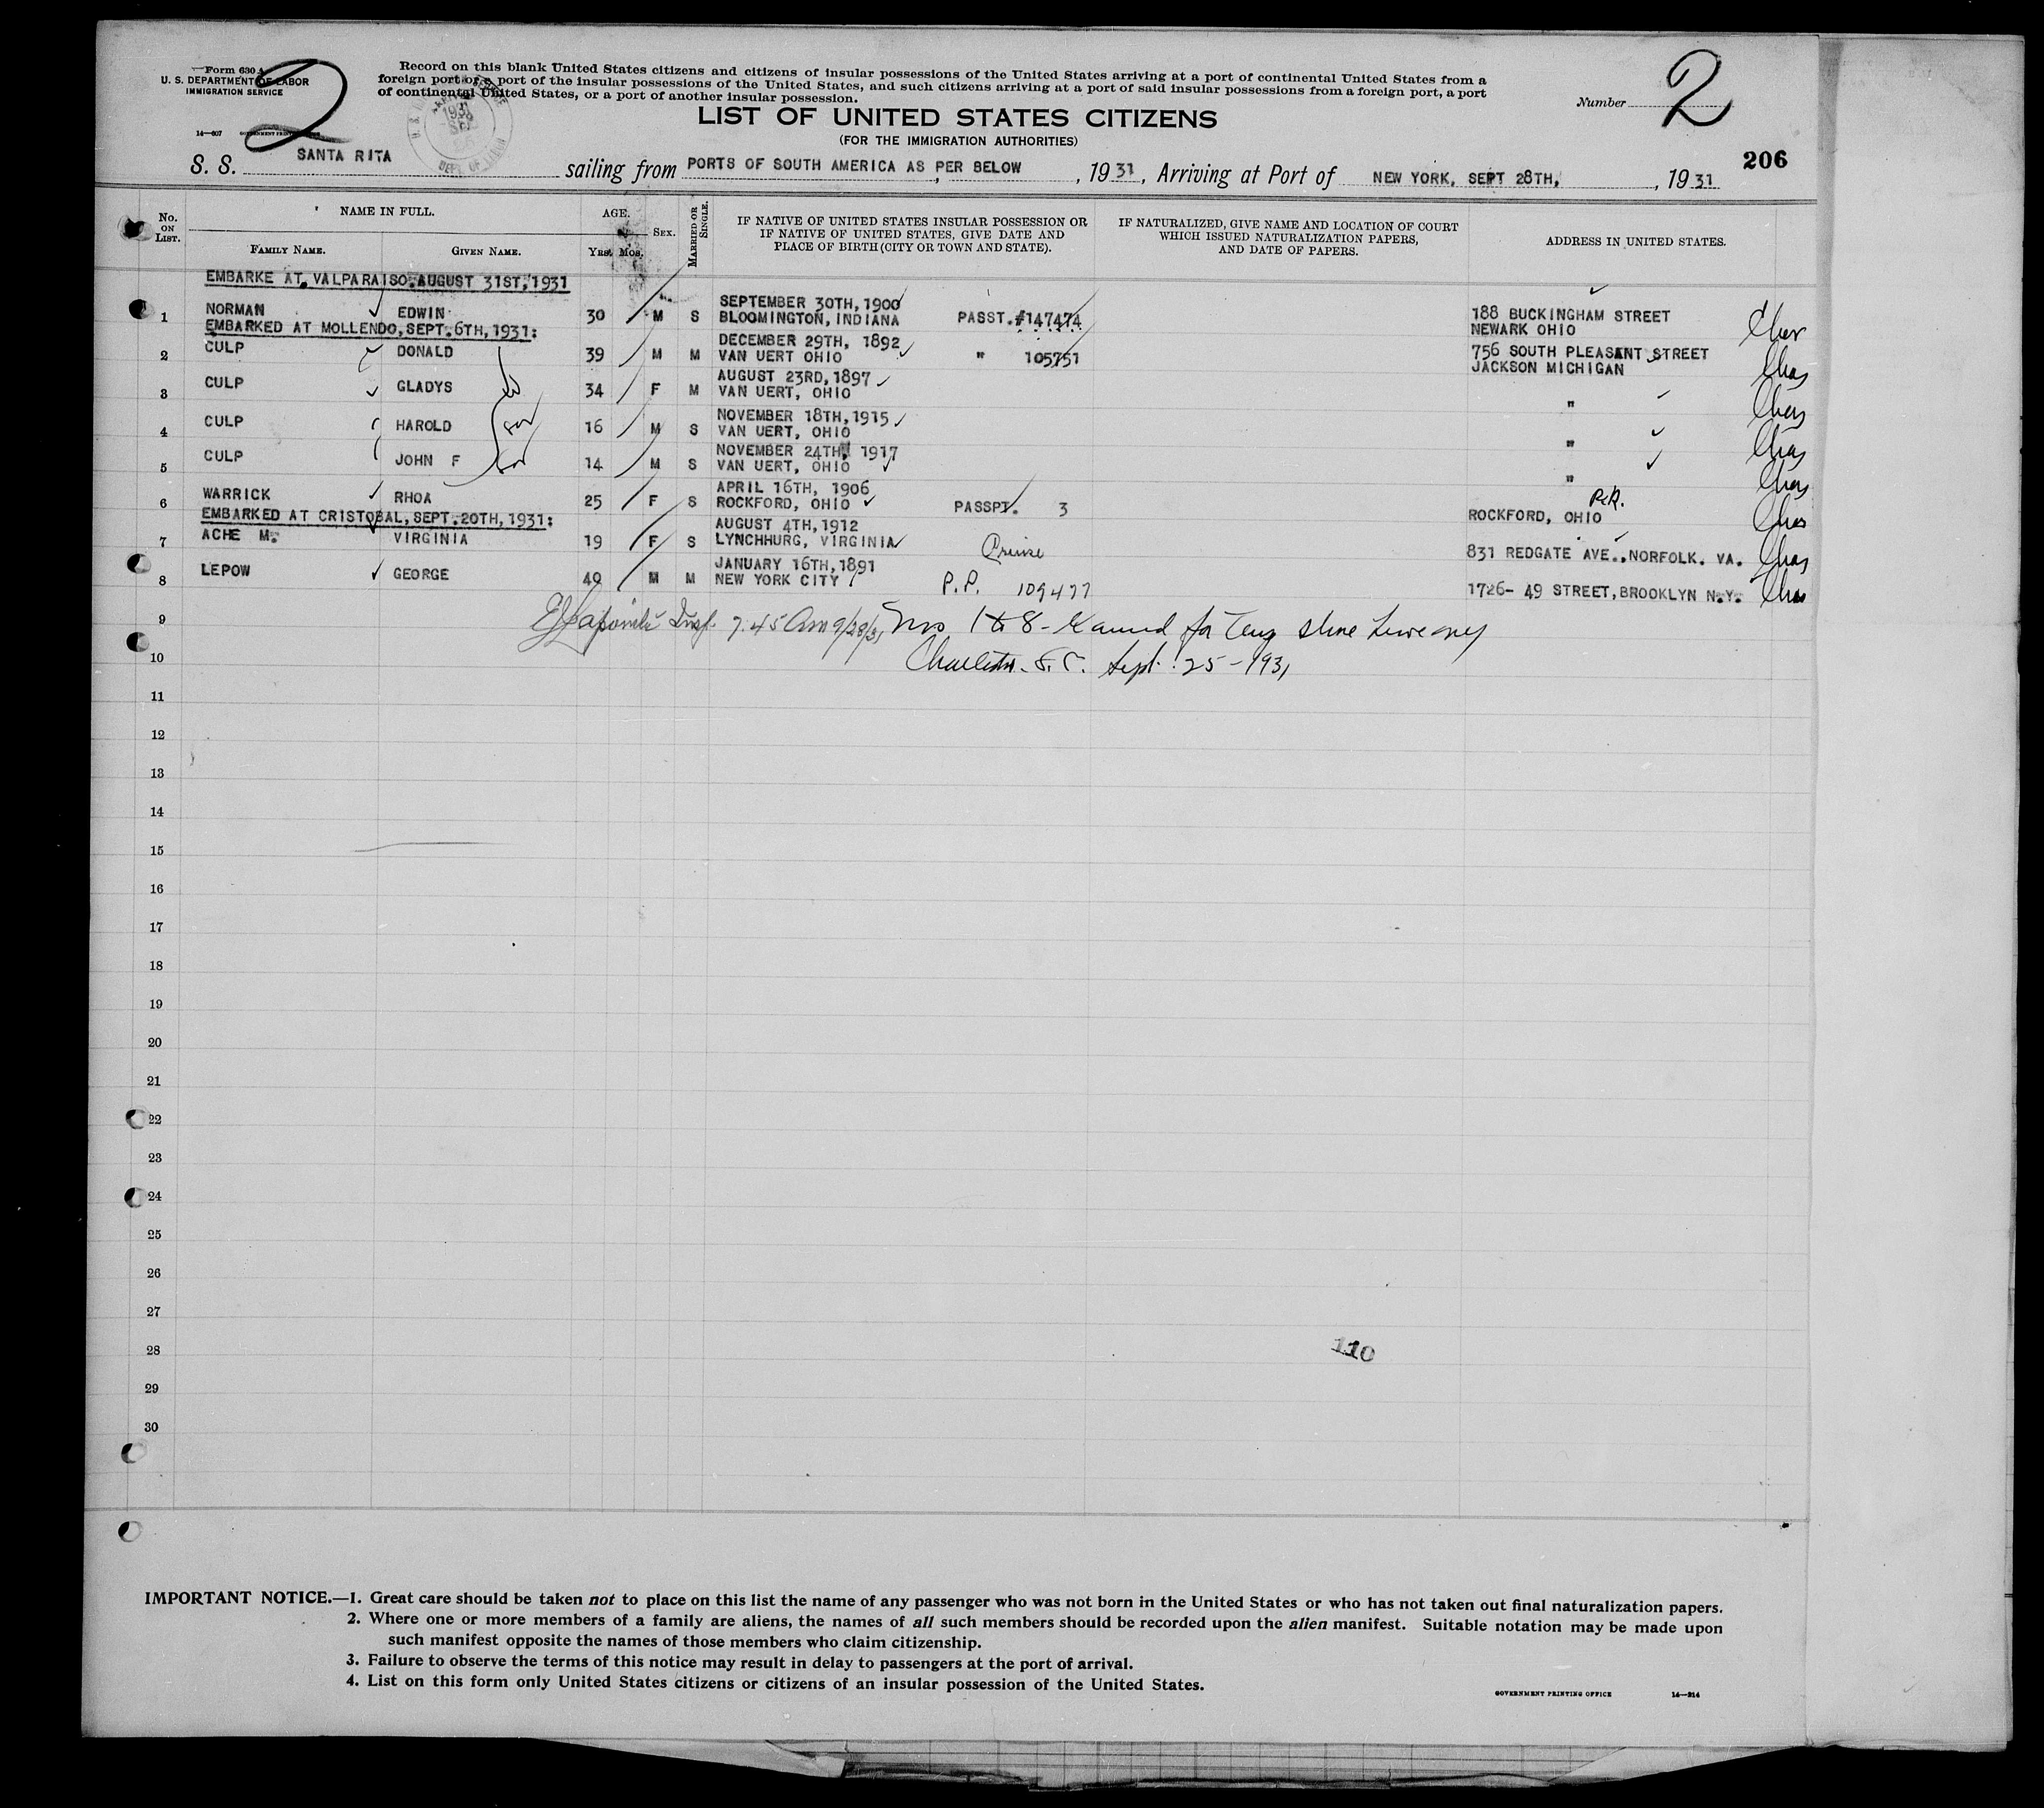 Form 630 A
U. S. DEPARTMENT OF LABOR
IMMIGRATION SERVICE
14—607
2
Record on this blank United States citizens and citizens of insular possessions of the United States arriving at a port of continental United States from a
foreign port or a port of the insular possessions of the United States, and such citizens arriving at a port of said insular possessions from a foreign port, a port
of continental United States, or a port of another insular possession.
LIST OF UNITED STATES CITIZENS
(FOR THE IMMIGRATION AUTHORITIES)
Number 2
206
S. S. SANTA RITA sailing from PORTS OF SOUTH AMERICA AS PER BELOW, 1931, Arriving at Port of NEW YORK, SEPT 28TH, , 1931
No. ON LIST.
NAME IN FULL.
FAMILY NAME. GIVEN NAME.
AGE.
Yrs. Mos.
SEX.
MARRIED OR SINGLE.
IF NATIVE OF UNITED STATES INSULAR POSSESSION OR
IF NATIVE OF UNITED STATES, GIVE DATE AND
PLACE OF BIRTH (CITY OR TOWN AND STATE).
IF NATURALIZED, GIVE NAME AND LOCATION OF COURT
WHICH ISSUED NATURALIZATION PAPERS,
AND DATE OF PAPERS.
ADDRESS IN UNITED STATES.
EMBARKE AT VALPARAISO.AUGUST 31ST,1931
SEPTEMBER 30TH,1900
1 NORMAN EDWIN 30 M S BLOOMINGTON, INDIANA PASST.#147474 188 BUCKINGHAM STREET
NEWARK OHIO
EMBARKED AT MOLLENDO,SEPT.6TH,1931:
DECEMBER 29TH, 1892
2 CULP DONALD 39 M M VAN UERT OHIO " 105751 756 SOUTH PLEASANT STREET
JACKSON MICHIGAN Chas
AUGUST 23RD,1897
3 CULP GLADYS W 34 F M VAN UERT, OHIO " Chas
NOVEMBER 18TH,1915
4 CULP HAROLD son 16 M S VAN UERT, OHIO " Chas
NOVEMBER 24TH, 1917
5 CULP JOHN F son 14 M S VAN UERT, OHIO " Chas
APRIL 16TH, 1906
6 WARRICK RHOA 25 F S ROCKFORD, OHIO PASSPT. 3 ROCKFORD, OHIO Chas
EMBARKED AT CRISTOBAL,SEPT.20TH,1931:
AUGUST 4TH,1912
7 ACHE M. VIRGINIA 19 F S LYNCHHURG, VIRGINIA Cruise 831 REDGATE AVE.,NORFOLK. VA. Chas
JANUARY 16TH,1891
8 LEPOW GEORGE 40 M M NEW YORK CITY P.P. 109477 1726- 49 STREET,BROOKLYN N.Y. Chas
9 Insp. 7.45 Am 9/28/31 Nos 1 to 8 -
10 Charleston. S.C. Sept. 25-1931
11
12
13
14
15
16
17
18
19
20
21
22
23
24
25
26
27
28 110
29
30
IMPORTANT NOTICE.—1. Great care should be taken not to place on this list the name of any passenger who was not born in the United States or who has not taken out final naturalization papers.
2. Where one or more members of a family are aliens, the names of all such members should be recorded upon the alien manifest. Suitable notation may be made upon
such manifest opposite the names of those members who claim citizenship.
3. Failure to observe the terms of this notice may result in delay to passengers at the port of arrival.
4. List on this form only United States citizens or citizens of an insular possession of the United States.
GOVERNMENT PRINTING OFFICE 14—214